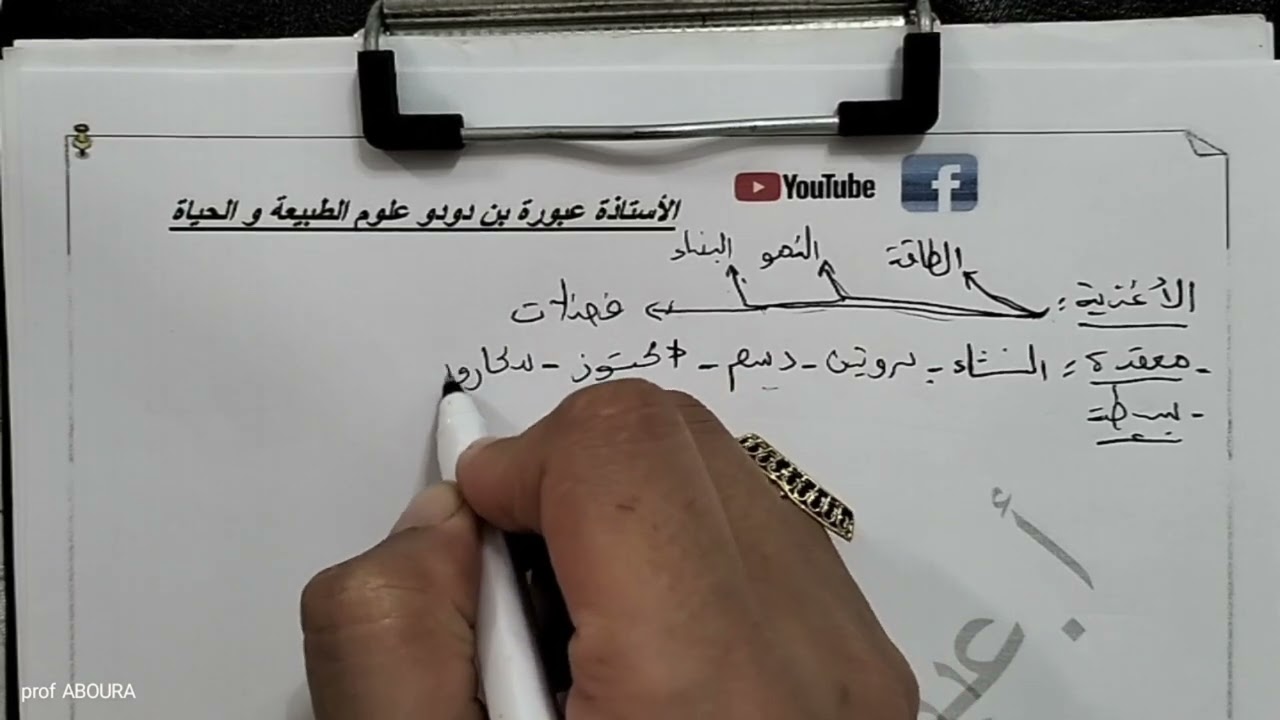 YouTube f
الأستاذة عبورة بن دودو علوم الطبيعة و الحياة
الطاقة النمو البناء
الأغذية : فضلات
- معقدة : النشاء - بروتين - دسم - لاكتوز - سكاروز
- بسيطة
أ. عبو
prof ABOURA